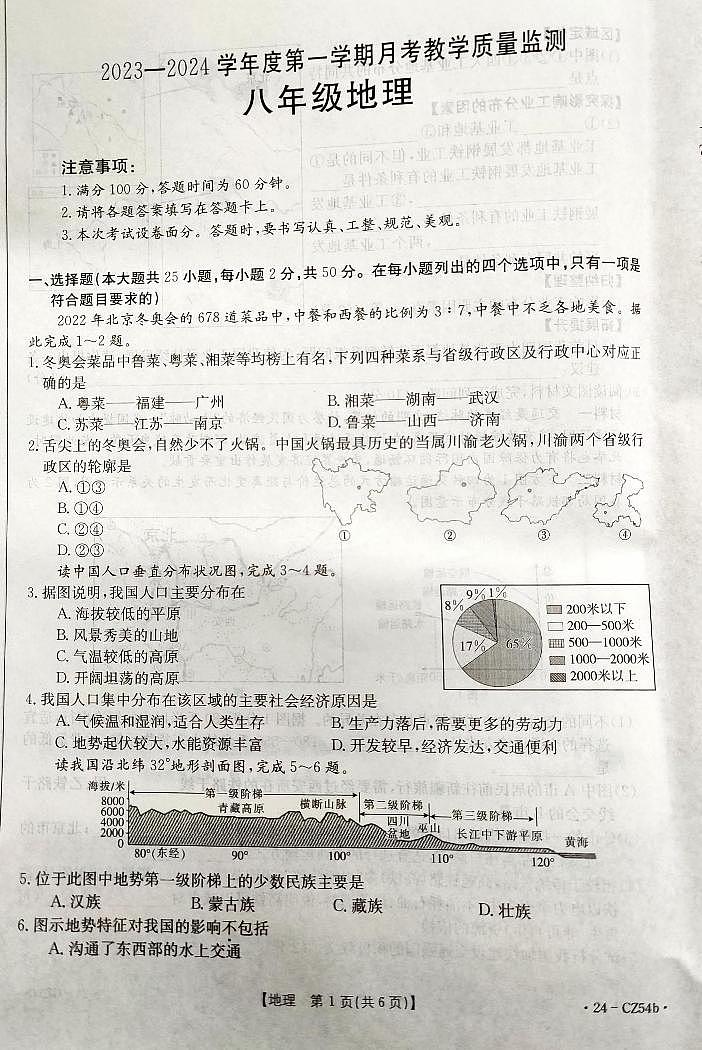 2023—2024 学年度第一学期月考教学质量监测
八年级地理
注意事项：
1. 满分 100 分，答题时间为 60 分钟。
2. 请将各题答案填写在答题卡上。
3. 本次考试设卷面分。答题时，要书写认真、工整、规范、美观。
一、选择题（本大题共 25 小题，每小题 2 分，共 50 分。在每小题列出的四个选项中，只有一项是
符合题目要求的）
2022 年北京冬奥会的 678 道菜品中，中餐和西餐的比例为 3：7，中餐中不乏各地美食。据
此完成 1～2 题。
1. 冬奥会菜品中鲁菜、粤菜、湘菜等均榜上有名，下列四种菜系与省级行政区及行政中心对应正
确的是
A. 粤菜——福建——广州 B. 湘菜——湖南——武汉
C. 苏菜——江苏——南京 D. 鲁菜——山西——济南
2. 舌尖上的冬奥会，自然少不了火锅。中国火锅最具历史的当属川渝老火锅，川渝两个省级行
政区的轮廓是
A. ①③
B. ①④
C. ②④
D. ②③
① ② ③ ④
读中国人口垂直分布状况图，完成 3～4 题。
3. 据图说明，我国人口主要分布在
A. 海拔较低的平原
B. 风景秀美的山地
C. 气温较低的高原
D. 开阔坦荡的高原
8% 9% 1%
17% 65%
200米以下
200—500米
500—1000米
1000—2000米
2000米以上
4. 我国人口集中分布在该区域的主要社会经济原因是
A. 气候温和湿润，适合人类生存 B. 生产力落后，需要更多的劳动力
C. 地势起伏较大，水能资源丰富 D. 开发较早，经济发达，交通便利
读我国沿北纬 32°地形剖面图，完成 5～6 题。
海拔/米
8000
6000
4000
2000
0
第一级阶梯
青藏高原 横断山脉
第二级阶梯
四川
盆地 巫山
第三级阶梯
长江中下游平原 黄海
80°(东经) 90° 100° 110° 120°
5. 位于此图中地势第一级阶梯上的少数民族主要是
A. 汉族 B. 蒙古族 C. 藏族 D. 壮族
6. 图示地势特征对我国的影响不包括
A. 沟通了东西部的水上交通
【地理 第 1 页(共 6 页)】
·24－CZ54b·